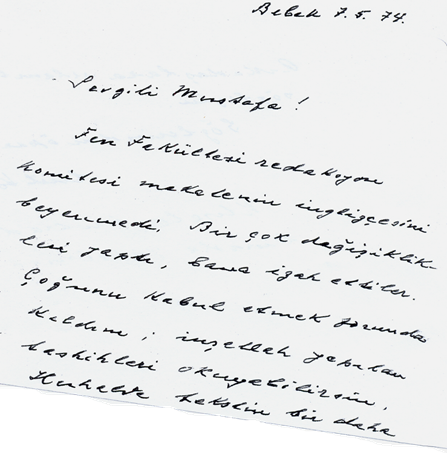 Bebek 7.5.74.
Sevgili Mustafa!
Fen Fakültesi redaksyon
komitesi makalenin ingilizcesini
beyenmedi. Bir çok değişiklik-
leri yaptı, bana izah ettiler.
Çoğunu kabul etmek zorunda
kaldım; inşallah yapılan
tashihleri okuyabilirsin,
tekstin bir daha